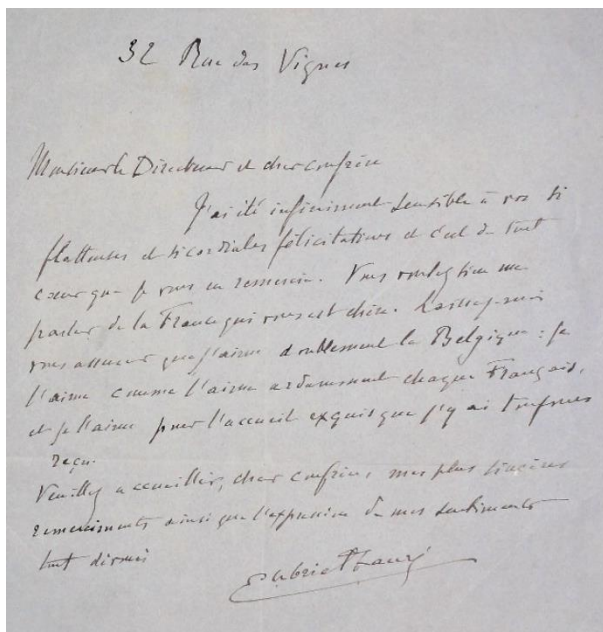 32 Rue des Vignes
Monsieur le Directeur et cher confrère
J'ai été infiniment sensible à vos si
flatteuses et si cordiales félicitations et c'est de tout
cœur que je vous en remercie. Vous voulez bien me
parler de la France qui vous est chère. Laissez-moi
vous assurer que j'aime doublement la Belgique : je
l'aime comme l'aime ardemment chaque Français,
et je l'aime pour l'accueil exquis que j'y ai toujours
reçu.
Veuillez accueillir, cher confrère, mes plus sincères
remerciements ainsi que l'expression de mes sentiments
tout dévoués
Gabriel Fauré